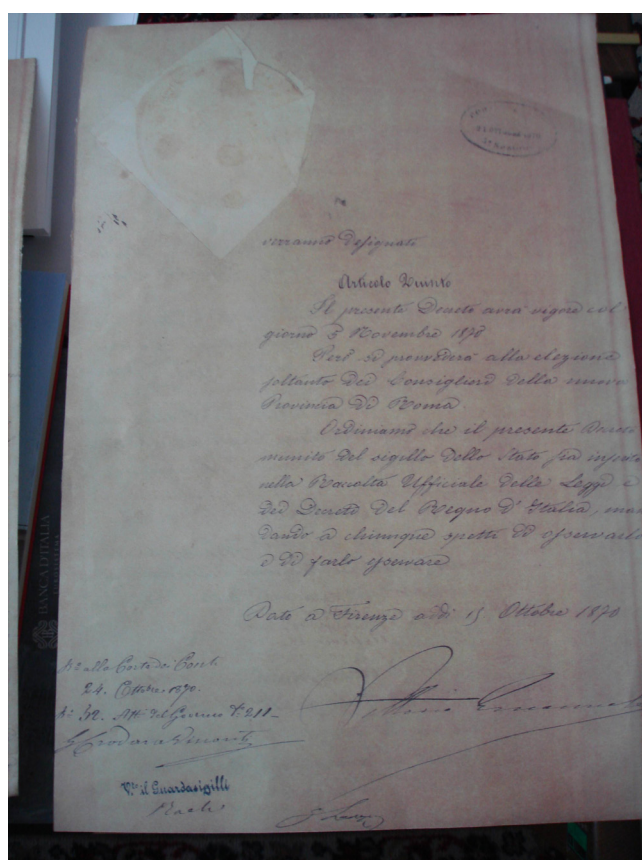 verranno designati
Articolo Quinto
Il presente Decreto avrà vigore col
giorno 5 Novembre 1870
Però si provvederà alla elezione
soltanto dei Consiglieri della nuova
Provincia di Roma.
Ordiniamo che il presente Decreto
munito del sigillo dello Stato sia inserto
nella Raccolta Ufficiale delle Leggi e
dei Decreti del Regno d'Italia, man
dando a chiunque spetti di osservarlo
e di farlo osservare
Dato a Firenze addì 15 Ottobre 1870
alla Corte dei Conti
24. Ottobre 1870.
Vittorio Emanuele
V.to il Guardasigilli
Raeli
BANCA D'ITALIA